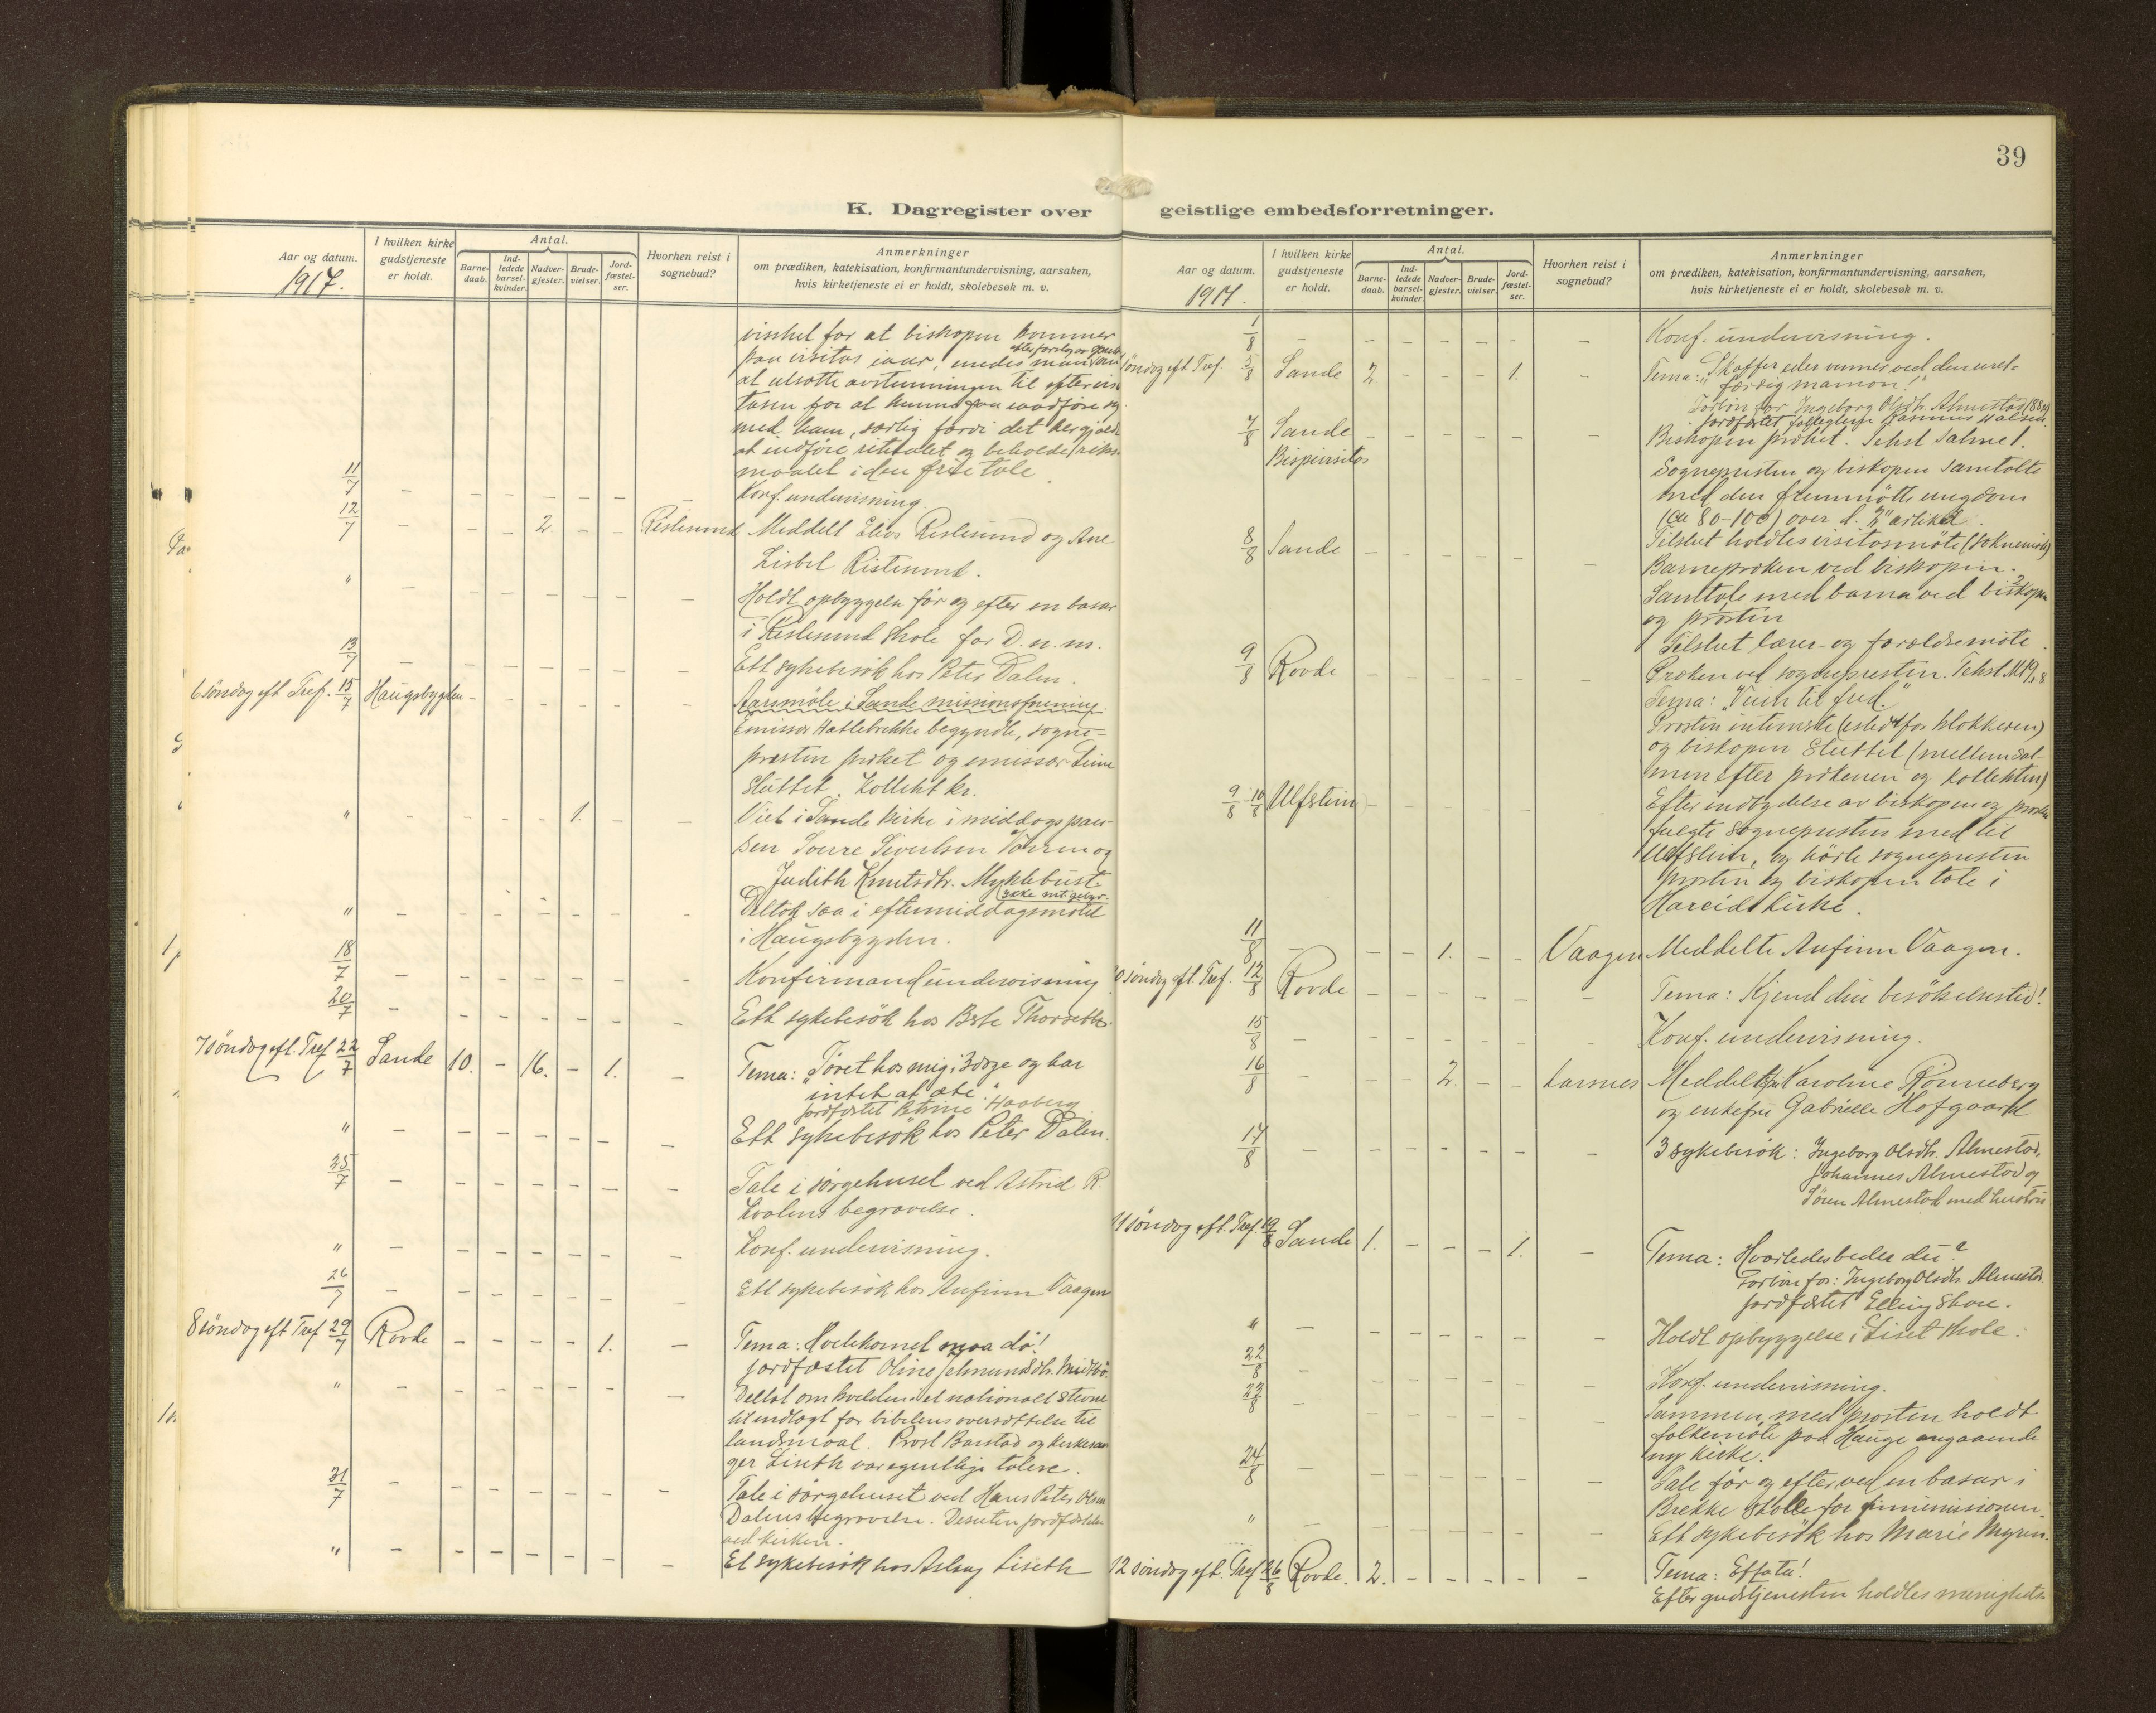 39
K. Dagregister over geistlige embedsforretninger.
Aar og datum.
1917.
I hvilken kirke gudstjeneste er holdt.
Antal.
Barne-daab.
Ind-ledede barsel-kvinder.
Nadver-gjester.
Brude-vielser.
Jord-fæstel-ser.
Hvorhen reist i sognebud?
Anmerkninger
om prædiken, katekisation, konfirmantundervisning, aarsaken,
hvis kirketjeneste ei er holdt, skolebesøk m. v.
for at biskopen kommer
paa visitas iaar,
at utsætte avstemningen til efter
for at kunne faa raadføre sig
med ham, særlig fordi det her gjælder
at indføre ritualet og beholde riks-
maalet i den frie tale.
11/7 – – – – – – – Konf. undervisning.
12/7 – – – 2. – – Rislesund Meddelt Elias Rislesund og Ane
Lisbet Ristesund.
" – – – – – – – Holdt opbyggelse før og efter en basar
i Rislesund skole for D. n. m.
13/7 – – – – – – – Ett sykebesøk hos Peter Dalen.
6 søndag eft Tref. 15/7 Haugsbygden – – – – – – Aarsmøte i Sande missionsforening.
Emissær Hatlebrekke begyndte, sogne-
presten præket og emissær Lime
sluttet. Kollekt kr.
" – – – – 1. – – Viet i Sande kirke i middagspau-
sen Sverre Sivertsen Vaaren og
Judith Knutsdtr. Myklebust.
" – – – – – – – Deltok saa i eftermiddagsmøtet
i Haugsbygden.
18/7 – – – – – – – Konfirmandundervisning
20/7 – – – – – – – Ett sykebesøk hos Berte Thorseth.
7 søndag eft. Tref 22/7 Sande 10. – 16. – 1. – Tema: "Tøvet hos mig i 3 dage og har
intet at æte".
Jordfæstet Petrine Haaberg
" – – – – – – – Ett sykebesøk hos Peter Dalen.
25/7 – – – – – – – Tale i sørgehuset ved Astrid R.
Kvalens begravelse.
" – – – – – – – Konf. undervisning.
26/7 – – – – – – – Ett sykebesøk hos Anfinn Vaagen
8 søndag eft Tref 29/7 Rovde – – – – 1. – Tema: Hvetekornet maa dø!
Jordfæstet Oline Jetmundsdtr. Midtbø.
" – – – – – – – Deltat om kvelden i et nationalt stevne
til indtægt for bibelens oversættelse til
landsmaal. Prost Barstad og kirkesan-
ger Liseth var egentlige talere.
31/7 – – – – – – – Tale i sørgehuset ved Hans Peter Olsen
Dalens begravelse. Desuten jordfæstelse
ved kirken.
" – – – – – – – Et sykebesøk hos Aslaug Liseth
Aar og datum.
1917.
I hvilken kirke gudstjeneste er holdt.
Antal.
Barne-daab.
Ind-ledede barsel-kvinder.
Nadver-gjester.
Brude-vielser.
Jord-fæstel-ser.
Hvorhen reist i sognebud?
Anmerkninger
om prædiken, katekisation, konfirmantundervisning, aarsaken,
hvis kirketjeneste ei er holdt, skolebesøk m. v.
1/8 – – – – – – – Konf. undervisning.
søndag eft Tref. 5/8 Sande 2. – – – 1. – Tema: "Skaffer eder venner ved den uret-
færdig mamon!"
Forbøn for Ingeborg Olsdtr. Almestad
Jordfæstet
7/8 Sande – – – – – – Biskopen præket. Tekst Salme 1.
Bispevisitas
Sognepresten og biskopen samtalte
med den fremmøtte ungdom
(ca 80-100) over d. 2" artikel.
Tilslut holdtes visitasmøte (soknemøte)
8/8 Sande – – – – – – Barnepræken ved biskopen.
Samtale med barna ved biskopen
og prosten
Tilslut lærer- og forældremøte.
9/8 Rovde – – – – – – Præken ved sognepresten. Tekst
Tema: "Vun til fred."
Prosten intimerte (istedetfor klokkeren)
og biskopen sluttet (mellem sal-
men efter prækenen og kollekten)
9/8-10/8 Ulfstein – – – – – – Efter indbydelse av biskopen og prosten
fulgte sognepresten med til
Ulfstein, og hørte sognepresten
prosten og biskopen tale i
Hareid kirke.
11/8 – – – 1. – – Vaagen Meddelte Anfinn Vaagen.
10 søndag eft. Tref. 12/8 Rovde – – – – – – Tema: Kjend din besøkelsestid!
15/8 – – – – – – – Konf. undervisning.
16/8 – – – 2. – – Larsnes Meddelt fru Karoline Rønneberg
og enkefru Gabrielle Hofgaard
17/8 – – – – – – – 3 sykebesøk: Ingeborg Olsdtr. Almestad,
Johannes Almestad og
Søren Almestad med hustru
11 søndag eft. Tref. 19/8 Sande 1. – – – 1. – Tema: Hvorledes beder du?
Forbøn for: Ingeborg Olsdtr. Almestad
Jordfæstet Elling Skare.
" – – – – – – – Holdt opbyggelse i Liset skole.
22/8 – – – – – – – Konf. undervisning.
22/8 – – – – – – – Sammen med prosten holdt
folkemøte paa Hauge angaaende
ny kirke.
24/8 – – – – – – – Tale før og efter ved en basar i
Brekke skole for finnemissionen.
" – – – – – – – Ett sykebesøk hos Marie Myren.
12 søndag eft. Tref 26/8 Rovde. 2. – – – – – Tema: Effata!
Efter gudstjenesten holdtes menigheds-